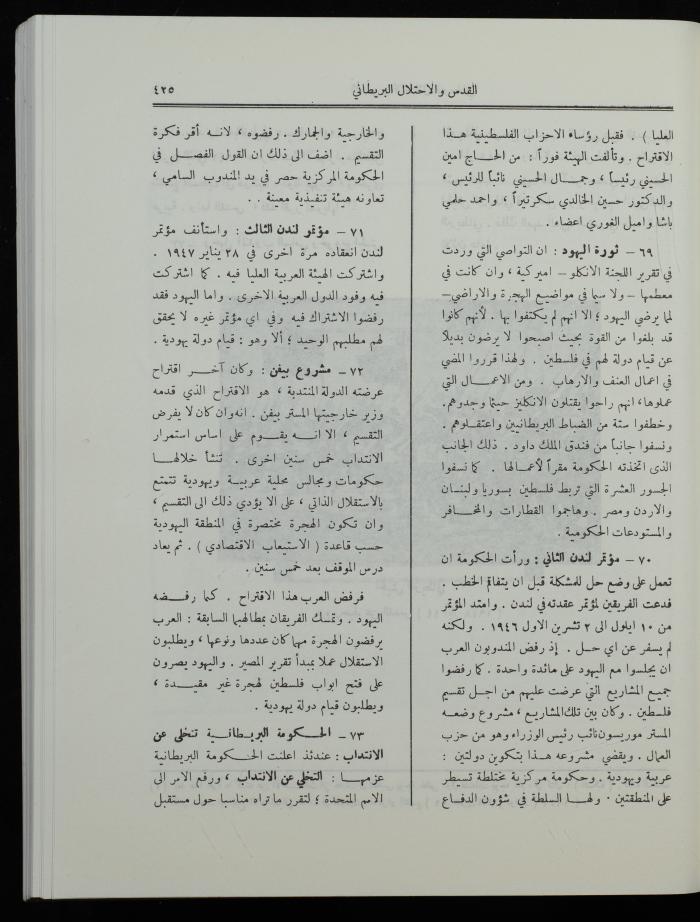 القدس والاحتلال البريطاني
٤٢٥
العليا ) . فقبل رؤساء الاحزاب الفلسطينية هذا
الاقتراح . وتألفت الهيئة فوراً : من الحاج امين
الحسيني رئيساً ، وجمال الحسيني نائباً للرئيس ،
والدكتور حسين الخالدي سكرتيراً ، واحمد حلمي
باشا واميل الغوري اعضاء .
٦٩ – ثورة اليهود : ان التواصي التي وردت
في تقرير اللجنة الانكلو – اميركية ، وان كانت في
معظمها – ولا سيما في مواضيع الهجرة والاراضي –
لما يرضي اليهود ؛ الا انهم لم يكتفوا بها . لأنهم كانوا
قد بلغوا من القوة بحيث اصبحوا لا يرضون بديلا
عن قيام دولة لهم في فلسطين . ولهذا قرروا المضي
في اعمال العنف والارهاب . ومن الاعمال التي
عملوها، انهم راحوا يقتلون الانكليز حيثما وجدوهم.
وخطفوا ستة من الضباط البريطانيين واعتقلوهم .
ونسفوا جانباً من فندق الملك داود . ذلك الجانب
الذي اتخذته الحكومة مقراً لأعمالها . كما نسفوا
الجسور العشرة التي تربط فلسطين بسوريا ولبنان
والاردن ومصر . وهاجموا القطارات والمخافر
والمستودعات الحكومية .
٧٠ – مؤتمر لندن الثاني : ورأت الحكومة ان
تعمل على وضع حل للمشكلة قبل ان يتفاقم الخطب .
فدعت الفريقين لمؤتمر عقدته في لندن . وامتد المؤتمر
من ١٠ ايلول الى ٢ تشرين الاول ١٩٤٦ . ولكنه
لم يسفر عن اي حل . إذ رفض المندوبون العرب
ان يجلسوا مع اليهود على مائدة واحدة . كما رفضوا
جميع المشاريع التي عرضت عليهم من اجل تقسيم
فلسطين . وكان بين تلك المشاريع ، مشروع وضعه
المستر موريسون نائب رئيس الوزراء وهو من حزب
العمال . ويقضي مشروعه هذا بتكوين دولتين :
عربية ويهودية . وحكومة مركزية مختلطة تسيطر
على المنطقتين . ولها السلطة في شؤون الدفاع
والخارجية والجمارك . رفضوه ، لانه أقر فكرة
التقسيم . اضف الى ذلك ان القول الفصل في
الحكومة المركزية حصر في يد المندوب السامي ،
تعاونه هيئة تنفيذية معينة . .
٧١ – مؤتمر لندن الثالث : واستأنف مؤتمر
لندن انعقاده مرة اخرى في ٢٨ يناير ١٩٤٧ .
واشتركت الهيئة العربية العليا فيه . كما اشتركت
فيه وفود الدول العربية الاخرى . واما اليهود فقد
رفضوا الاشتراك فيه وفي اي مؤتمر غيره لا يحقق
لهم مطلبهم الوحيد ؛ ألا وهو : قيام دولة يهودية .
٧٢ – مشروع بيفن : وكان آخر اقتراح
عرضته الدولة المنتدبة ، هو الاقتراح الذي قدمه
وزير خارجيتها المستر بيفن . انه وان كان لا يفرض
التقسيم ، الا انه يقوم على اساس استمرار
الانتداب خمس سنين اخرى . تنشأ خلالها
حكومات ومجالس محلية عربية ويهودية تتمتع
بالاستقلال الذاتي ، على الا يؤدي ذلك الى التقسيم ،
وان تكون الهجرة مختصرة في المنطقة اليهودية
حسب قاعدة ( الاستيعاب الاقتصادي ) . ثم يعاد
درس الموقف بعد خمس سنين .
فرفض العرب هذا الاقتراح . كما رفضه
اليهود . وتمسك الفريقان بمطالبهما السابقة : العرب
يرفضون الهجرة مهما كان عددها ونوعها ، ويطلبون
الاستقلال عملا بمبدأ تقرير المصير . واليهود يصرون
على فتح ابواب فلسطين لهجرة غير مقيدة ،
ويطلبون قيام دولة يهودية .
٧٣ – الحكومة البريطانية تتخلى عن
الانتداب : عندئذ اعلنت الحكومة البريطانية
عزمها : التخلي عن الانتداب ، ورفع الامر الى
الامم المتحدة ؛ لتقرر ما تراه مناسبا حول مستقبل